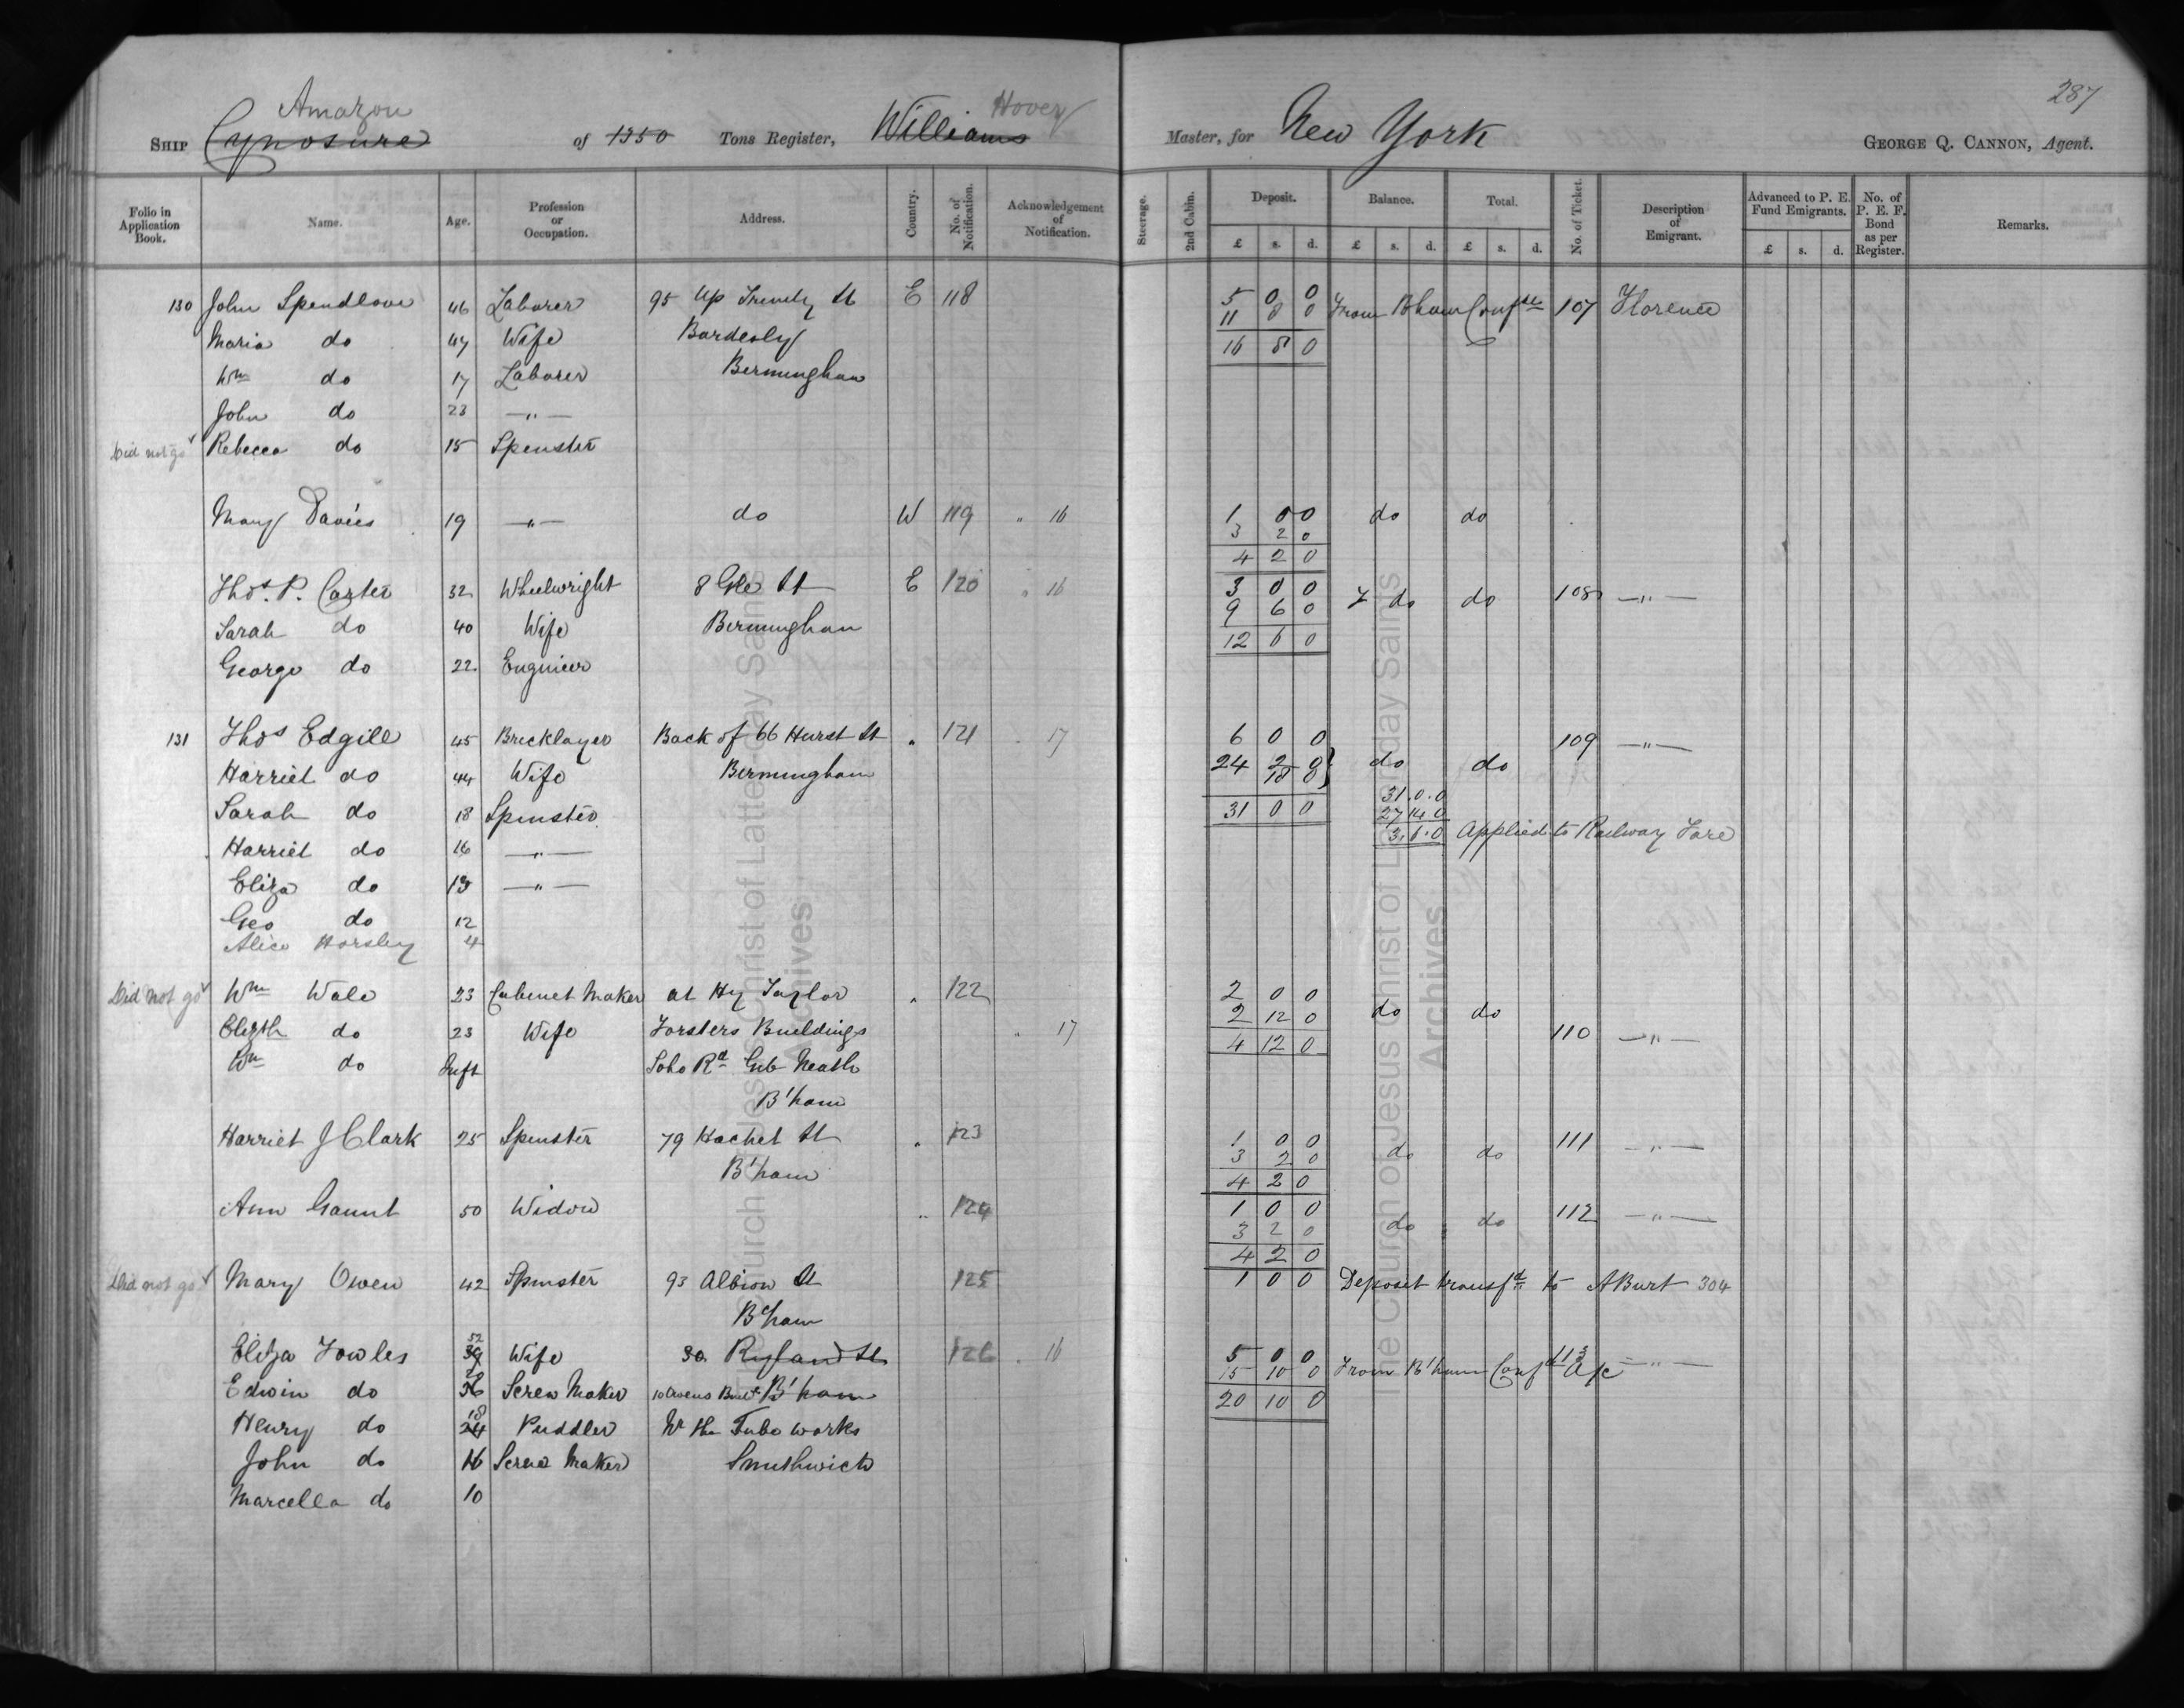 287
Amazon Hovey
SHIP Cynosure of 1350 Tons Register, Williams Master, for New York GEORGE Q. CANNON, Agent.
Folio in Application Book. Name. Age. Profession or Occupation. Address. Country. No. of Notification. Acknowledgement of Notification. Steerage. 2nd Cabin. Deposit. Balance. Total. No. of Ticket. Description of Emigrant. Advanced to P. E. Fund Emigrants. No. of P. E. F. Bond as per Register. Remarks.
£ s. d. £ s. d. £ s. d. £ s. d.
130 John Spendlove 46 Laborer 95 Up Trinity St E 118 5 0 0 From Bham Conf 107 Florence
11 8 0
Maria do 47 Wife Bordesly 16 8 0
Wm do 17 Laborer Birmingham
John do 23 — " —
Did not go Rebecca do 15 Spinster
Mary Davies 19 — " — do W 119 " 16 1 0 0 do do
3 2 0
4 2 0
Thos. P. Carter 32 Wheelwright 8 St E 120 " 16 3 0 0 do do 108 — " —
9 6 0
Sarah do 40 Wife Birmingham 12 6 0
George do 22 Engineer
131 Thos Edgill 45 Bricklayer Back of 66 Hurst St " 121 " 17 6 0 0 109 — " —
Harriet do 44 Wife Birmingham 24 2 0 do do
18 8
31.0.0
Sarah do 18 Spinster 31 0 0 27 14 0
3.6.0 Applied to Railway Fare
Harriet do 16 — " —
Eliza do 13 — " —
Geo do 12
Alice Horsley 4
Did not go Wm Wale 23 Cabinet Maker at Hy Taylor " 122 2 0 0
2 12 0 do do
Elizth do 23 Wife Forsters Buildings " 17 4 12 0 110 — " —
Wm do Inft Soho Rd Gib Heath
B'ham
Harriet J Clark 25 Spinster 79 Hachet St " 123 1 0 0 111 — " —
3 2 0 do do
B'ham 4 2 0
Ann Gaunt 50 Widow " 124 1 0 0 112 — " —
3 2 0 do do
4 2 0
Did not go Mary Owen 42 Spinster 93 Albion St 125 1 0 0 Deposit transfd to A Burt 304
B'ham
Eliza Fowles 52 Wife 30 Ryland St 126 " 16 5 0 0 113 — " —
15 10 0 From B'ham Conf a/c
Edwin do 20 Screw Maker B'ham 20 10 0
Henry do 18 24 Puddler Nr the Tube works
John do 16 Screw Maker Smithwick
Marcella do 10
The Church of Jesus Christ of Latter-day Saints
Archives
The Church of Jesus Christ of Latter-day Saints
Archives